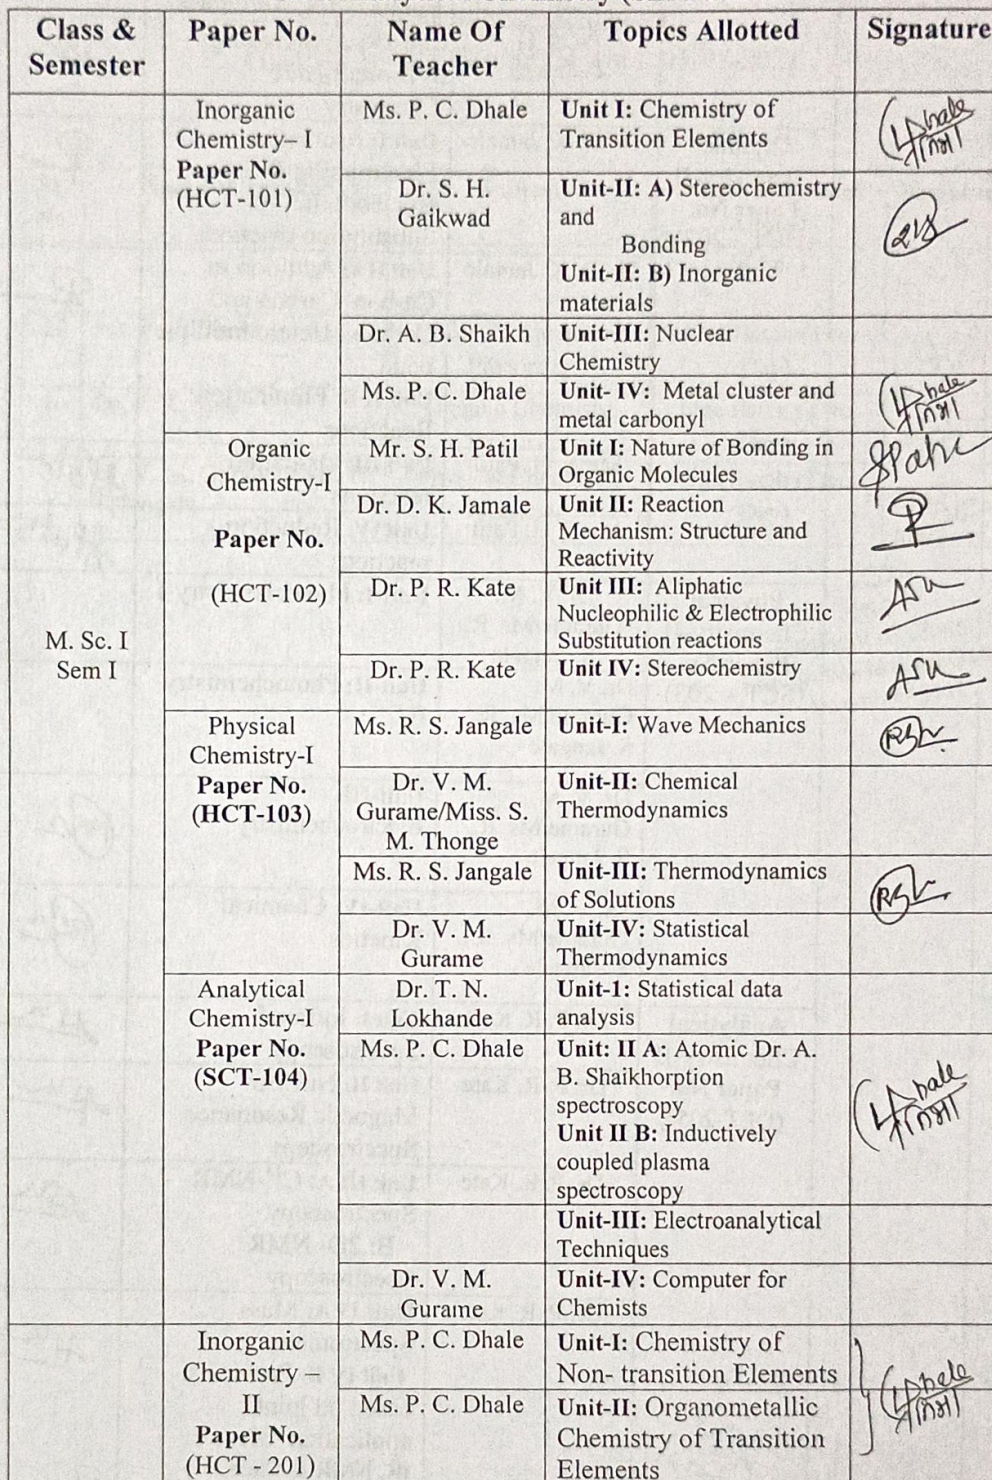 Class & Semester | Paper No. | Name Of Teacher | Topics Allotted | Signature
M. Sc. I
Sem I
Inorganic
Chemistry– I
Paper No.
(HCT-101)
Ms. P. C. Dhale
Unit I: Chemistry of
Transition Elements
Dr. S. H.
Gaikwad
Unit-II: A) Stereochemistry
and
Bonding
Unit-II: B) Inorganic
materials
Dr. A. B. Shaikh
Unit-III: Nuclear
Chemistry
Ms. P. C. Dhale
Unit- IV: Metal cluster and
metal carbonyl
Organic
Chemistry-I
Paper No.
(HCT-102)
Mr. S. H. Patil
Unit I: Nature of Bonding in
Organic Molecules
Dr. D. K. Jamale
Unit II: Reaction
Mechanism: Structure and
Reactivity
Dr. P. R. Kate
Unit III: Aliphatic
Nucleophilic & Electrophilic
Substitution reactions
Dr. P. R. Kate
Unit IV: Stereochemistry
Physical
Chemistry-I
Paper No.
(HCT-103)
Ms. R. S. Jangale
Unit-I: Wave Mechanics
Dr. V. M.
Gurame/Miss. S.
M. Thonge
Unit-II: Chemical
Thermodynamics
Ms. R. S. Jangale
Unit-III: Thermodynamics
of Solutions
Dr. V. M.
Gurame
Unit-IV: Statistical
Thermodynamics
Analytical
Chemistry-I
Paper No.
(SCT-104)
Dr. T. N.
Lokhande
Unit-1: Statistical data
analysis
Ms. P. C. Dhale
Unit: II A: Atomic Dr. A.
B. Shaikhorption
spectroscopy
Unit II B: Inductively
coupled plasma
spectroscopy
Unit-III: Electroanalytical
Techniques
Dr. V. M.
Gurame
Unit-IV: Computer for
Chemists
Inorganic
Chemistry –
II
Paper No.
(HCT - 201)
Ms. P. C. Dhale
Unit-I: Chemistry of
Non- transition Elements
Ms. P. C. Dhale
Unit-II: Organometallic
Chemistry of Transition
Elements